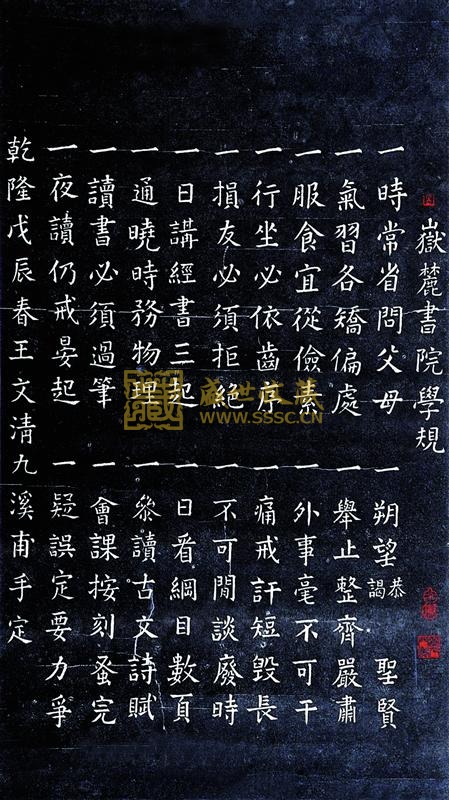 嶽麓書院學規
一時常省問父母 一朔望恭謁聖賢
一氣習各矯偏處 一舉止整齊嚴肅
一服食宜從儉素 一外事毫不可干
一行坐必依齒序 一痛戒訐短毀長
一損友必須拒絕 一不可閒談廢時
一日講經書三起 一日看綱目數頁
一通曉時務物理 一參讀古文詩賦
一讀書必須過筆 一會課按刻蚤完
一夜讀仍戒晏起 一疑誤定要力爭
乾隆戊辰春王文清九溪甫手定
盛世收藏
www.sssc.cn